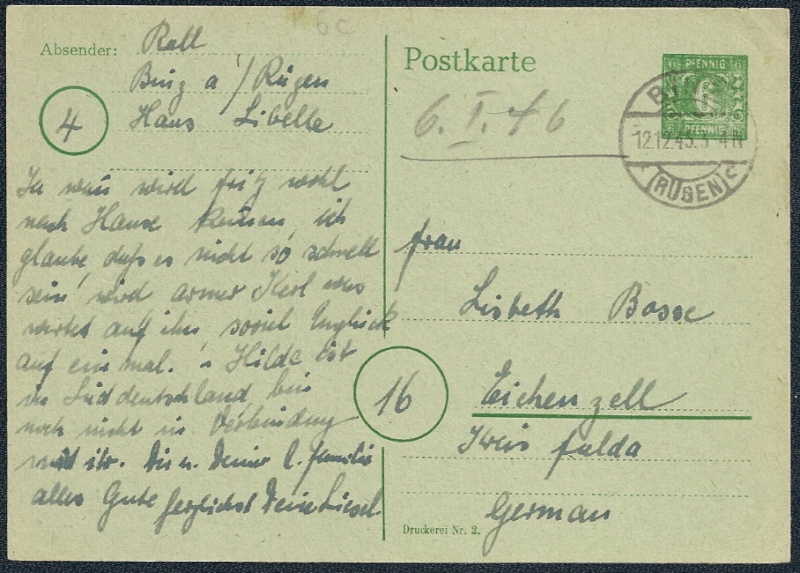 6c
Absender: Rall
Binz a/Rügen
Haus Libelle
4
Ja wann wird Fritz wohl
nach Hause kommen, ich
glaube, daß es nicht so schnell
sein wird armer Kerl was
wartet auf ihn, soviel Unglück
auf ein mal. Hilde ist
in Süddeutschland, bin
noch nicht in Verbindung
mit ihr. Dir u. Deiner l. Familie
alles Gute herzlichst Deine Liesel
Postkarte
6 PFENNIG 6
6
6 PFENNIG 6
6. I. 46
12.12.45.3-4N
(RÜGEN)c
Frau
Lisbeth Bosse
16
Eichenzell
Kreis Fulda
German
Druckerei Nr. 2.